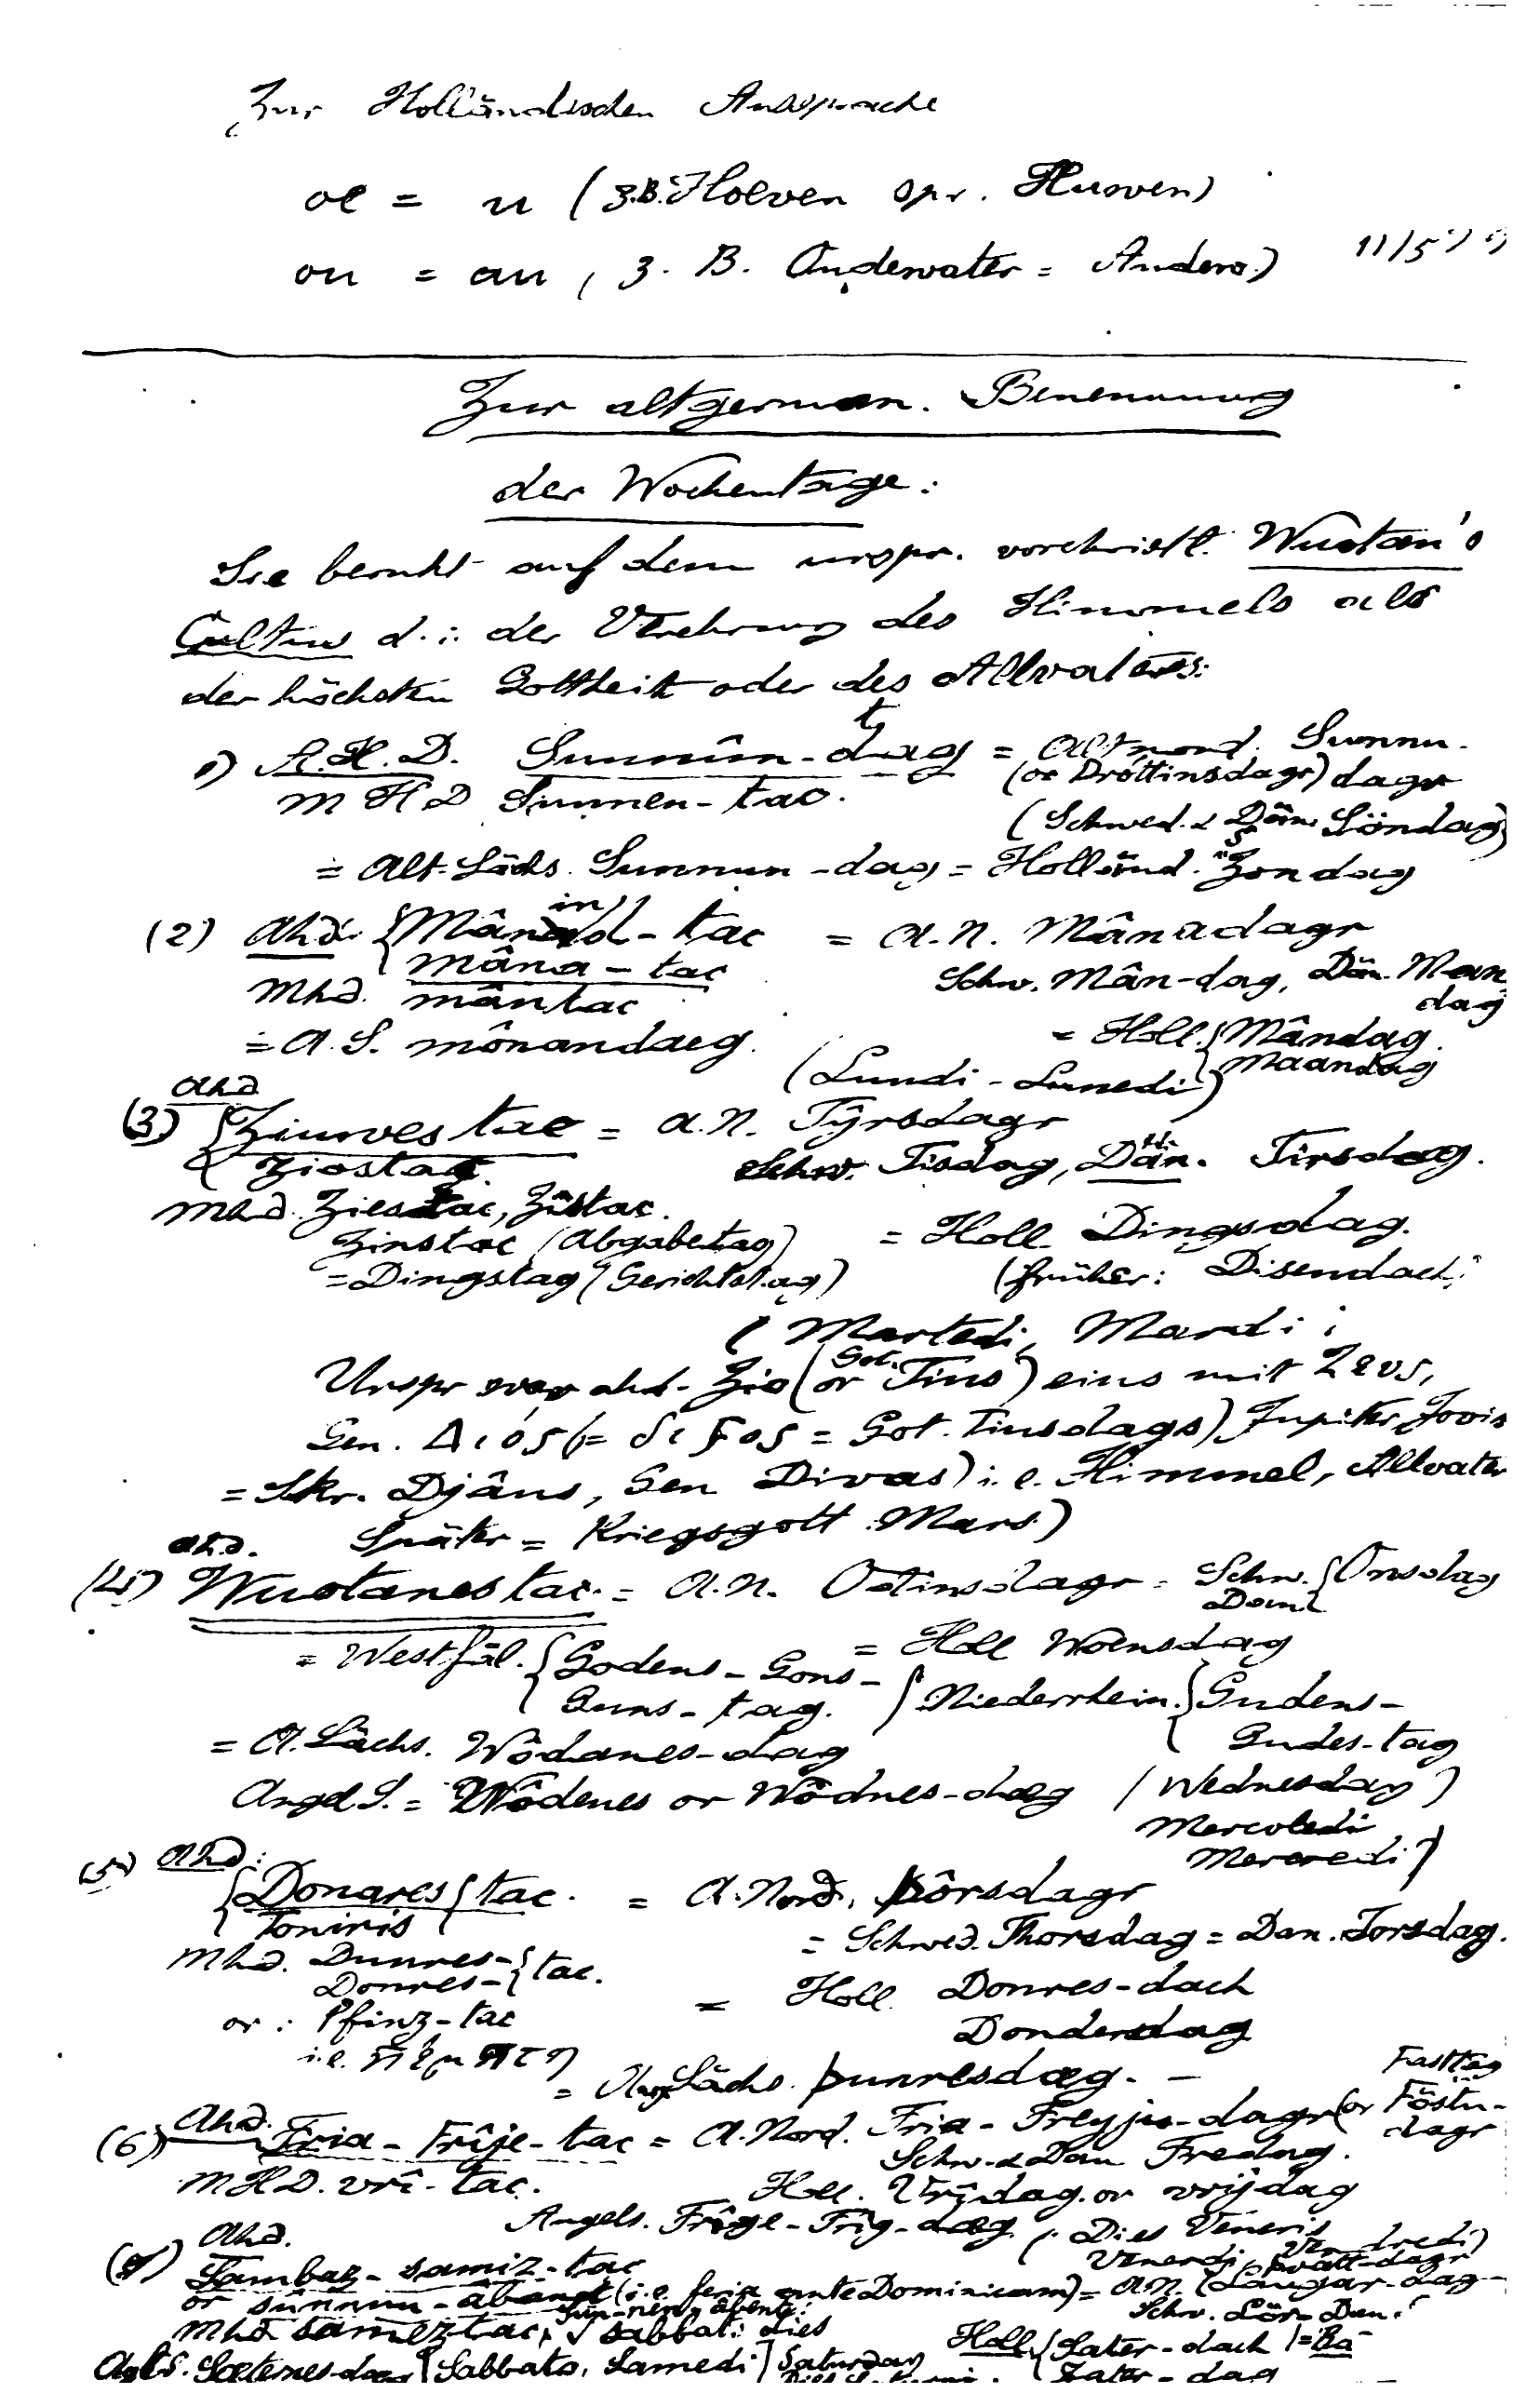 Zur Holländischen Aussprache
oe = u (z.B. Hoeven spr. Huwen)
ou = au, z. B. Oudewater = Audew.)
Zur altgerman. Benennung
der Wochentage:
Sie beruht auf dem urspr. vorchristl. Wuotan's
Cultus d. i. der Verehrung des Himmels als
der höchsten Gottheit oder des Allvaters:
1) A.H.D. Sunnûn-dag = Altnord. Sunnu-
t
(or Dróttinsdagr) dagr
MHD Sunnen-tac.
(Schwed. & Dän. Söndag)
= Alt-Sächs. Sunnun-dag = Holländ. Zondag
(2) ahd. {Mânin-tac = A.N. Mânadagr
mâna-tac
Schw. Mân-dag, Dän. Man-
dag
Mhd. mântac
= A.S. mônandaeg.
= Holl. {Mândag.
Maandag
(Lundi - Lunedi)
ahd
(3) {Ziuwestac = A.N. Tŷrsdagr
Ziostag.
Schw. Tisdag, Dän. Tirsdag.
Mhd. Ziestac, Zîstac.
Zinstac (Abgabetag)
= Holl. Dingsdag.
= Dingstag (Gerichtstag)
(früher: Disendach;
(Martedi, Mardi;
Urspr war ahd. Zio (or Got. Tius) eins mit Zευς,
Gen. Διός (= διϝος = Got. Tiusdags) Jupiter Jovis
= Skr. Djâus, Gen Divas) i.e. Himmel, Allvater
Später = Kriegsgott Mars)
ahd.
(4) Wuotanestac. = A.N. Odinsdagr = Schw. Dän. {Onsdag
= Holl Woensdag
= Westfäl. {Godens-Gons-
Guns-tag. {Niederrhein. {Gudens-
Gudes-tag
= A. Sächs. Wôdanes-dag
Angel S. = Wôdenes or Wôdnes-dæg (Wednesday)
Mercoledi
Mercredi)
(5) ahd:
{Donares {tac. = A. Nord. þôrsdagr
Toniris
= Schwed. Thorsdag = Dan. Torsdag.
Mhd. Dunres-{tac.
Donres-
= Holl. Donres-dach
Donderdag
or: Pfinz-tac
i.e. πέμπτη
= Ags Sächs. þunresdæg.
(6) Ahd. Fria-Frîje-tac = A. Nord. Fria-Freyju-dagr (or Föstu-
Fasttag
dagr
Schw. & Dan Fredag.
MHD. vrî-tac.
Holl. Vrijdag or vrijdag
Angels. Frîge-Frîg-dæg. (Dies Veneris
Venerdi, Vendredi)
Ahd.
(7) Sambaz-samiz-tac
or sunnun-âband (i.e. feria ante Dominicam) = A.N. (Laugar-dag
Schw. Lör- Dan.
Mhd samez-tac, sabbati dies
Holl {Sater-dach
Zater-dag
Ags. Sæternes-dæg {Sabbato, Samedi} Saturday